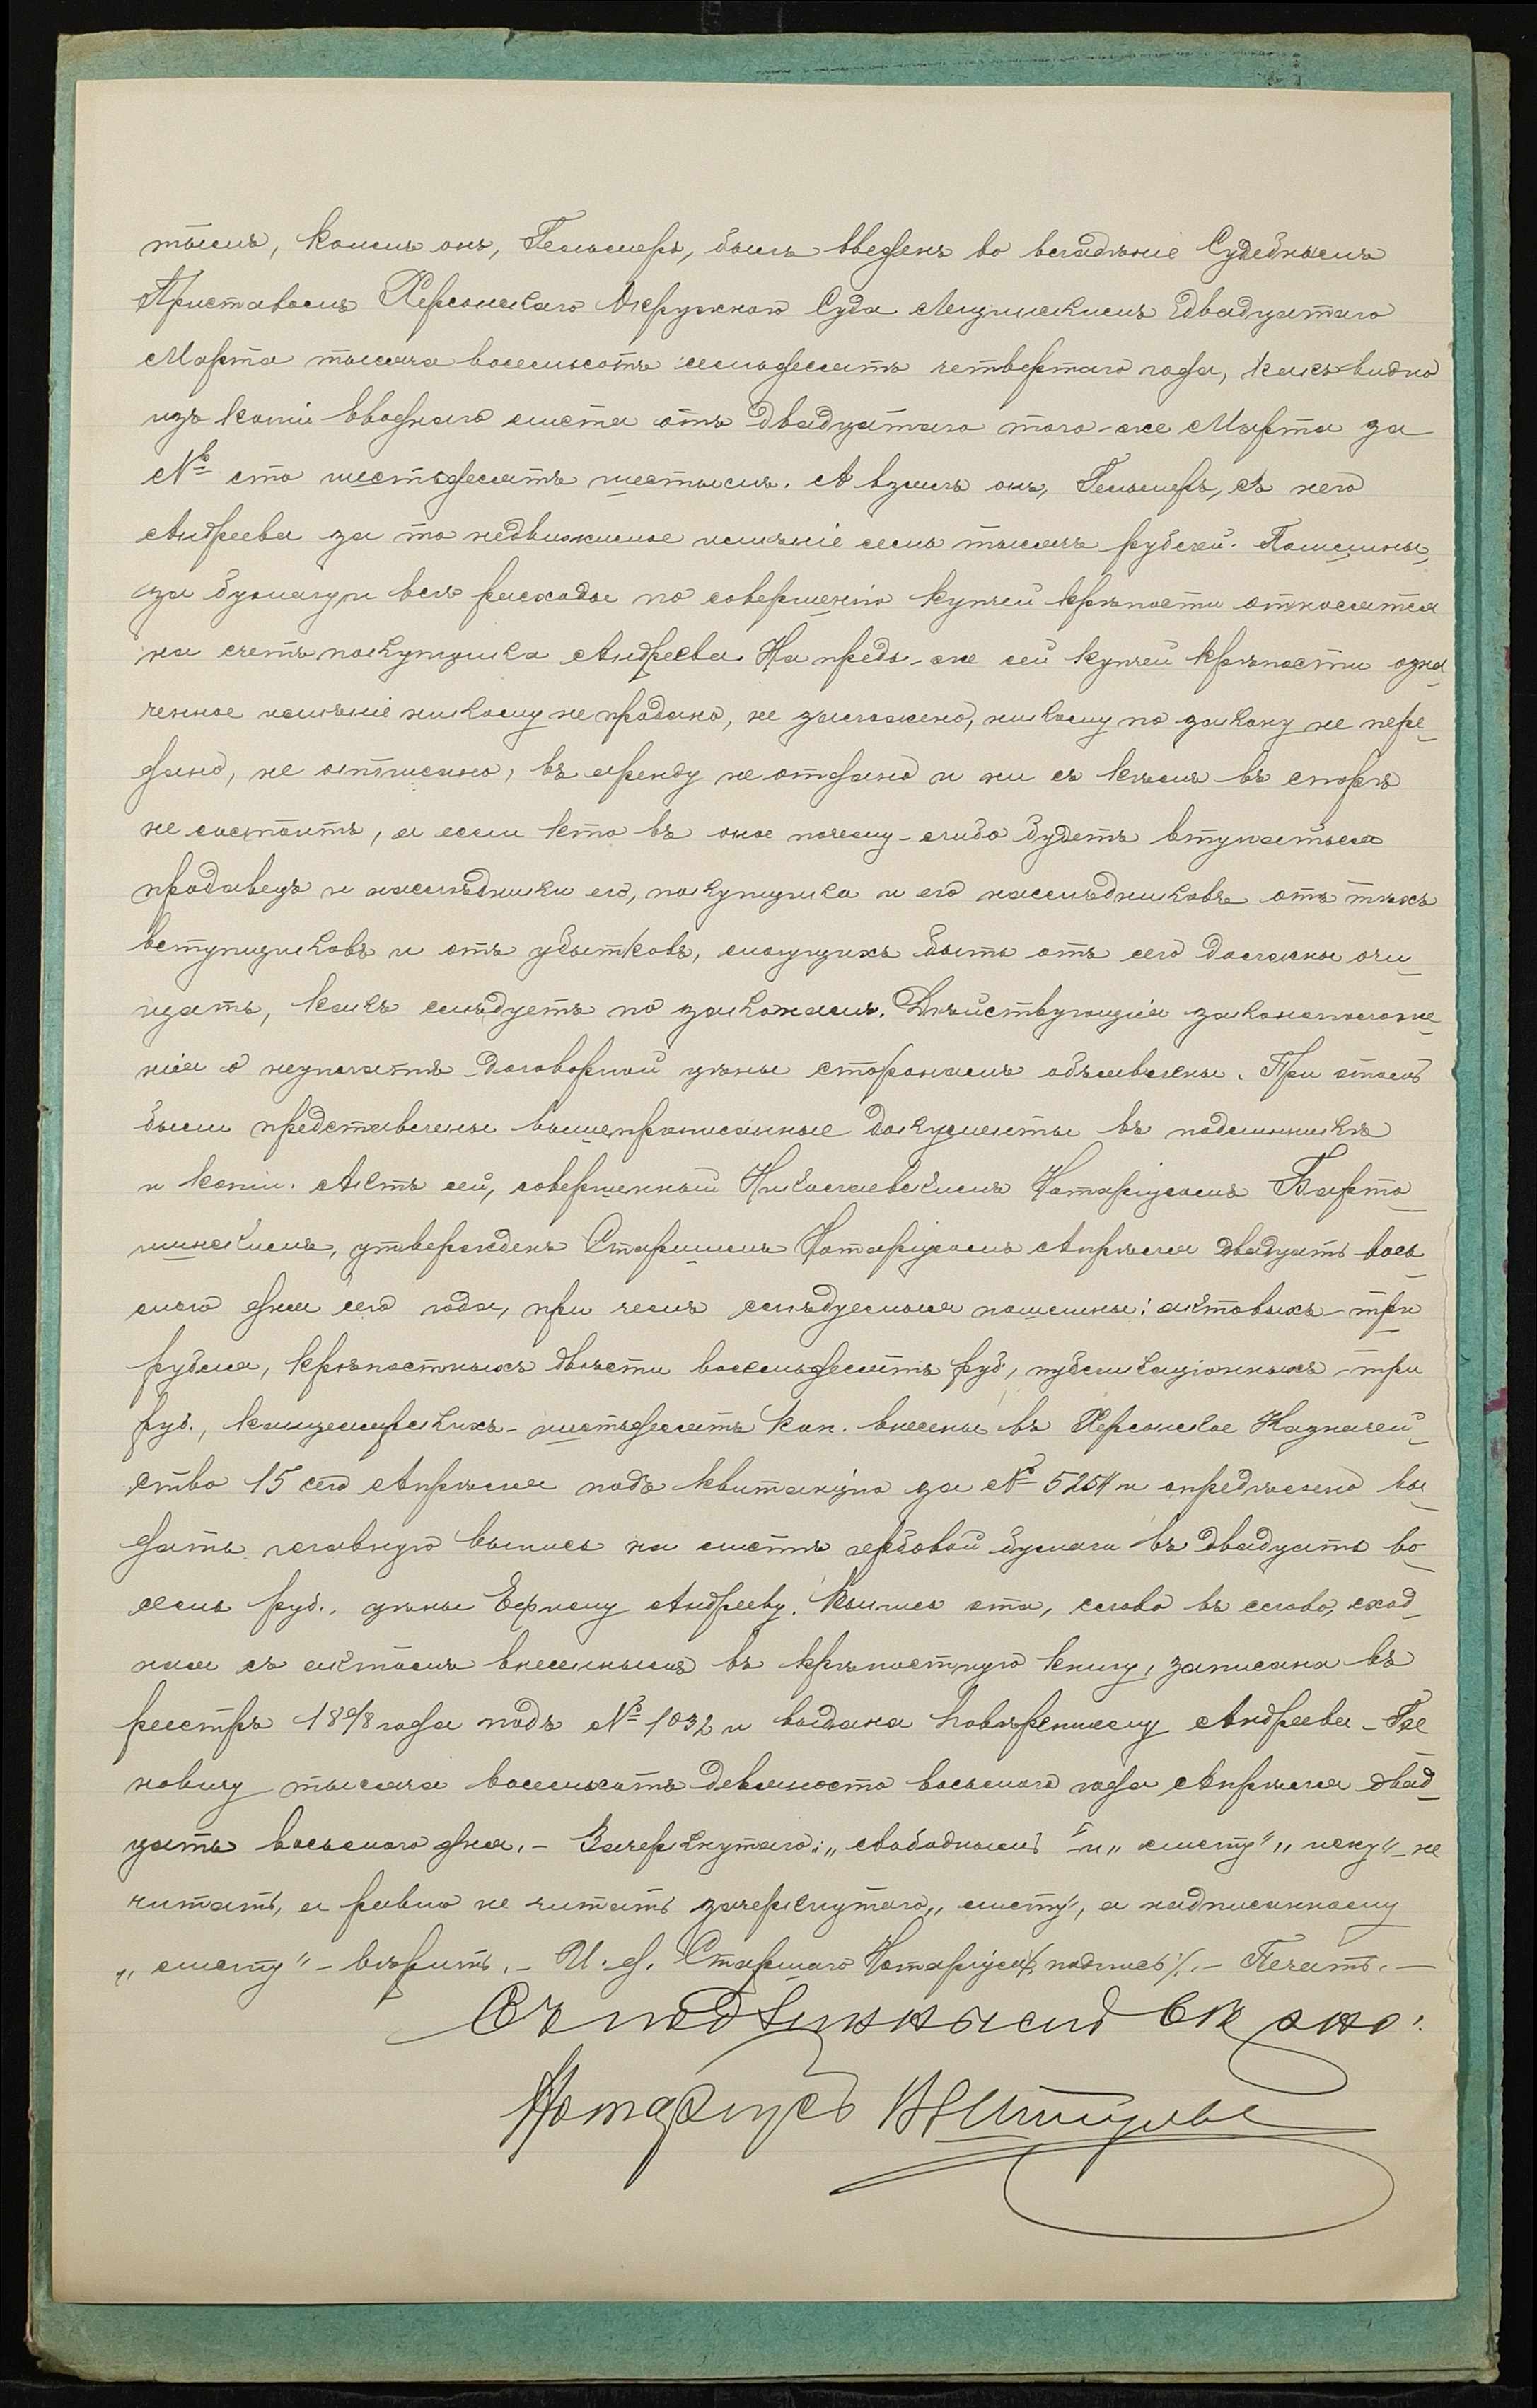 тымъ, коимъ онъ, Гельмеръ, былъ введенъ во владѣніе Судебнымъ
Приставомъ Херсонскаго Окружного Суда двадцатаго
Марта тысяча восемьсотъ семьдесятъ четвертаго года, какъ видно
изъ копіи вводнаго листа отъ двадцатаго того-же Марта за
№ сто шестьдесятъ шестымъ. А взялъ онъ, Гельмеръ, съ него
Андреева за то недвижимое имѣніе семь тысячъ рублей. Пошлины,
за бумагу и всѣ расходы по совершенію купчей крѣпости относятся
на счетъ покупщика Андреева. На предь-же сей купчей крѣпости озна-
ченное имѣніе никому не продано, не заложено, никому по закону не пере-
дано, не отписано, въ аренду не отдано и ни съ кѣмъ въ спорѣ
не состоитъ, а если кто въ оное почему-либо будетъ вступаться
продавецъ и наслѣдники его, покупщика и его наслѣдниковъ отъ тѣхъ
вступщиковъ и отъ убытковъ, могущихъ быть отъ сего должны очи-
щать, какъ слѣдуетъ по законамъ. Дѣйствующія законоположе-
нія о неутайкѣ договорной цѣны сторонамъ объявлены. При этомъ
были представлены вышепрописанные документы въ подлинникѣ
и копіи. Актъ сей, совершенный Николаевскимъ Нотаріусомъ Барто-
шинскимъ, утвержденъ Старшимъ Нотаріусомъ Апрѣля двадцать вось-
мого дня сего года, при чемъ слѣдуемыя пошлины: актовыхъ-три
рубля, крѣпостныхъ двѣсти восемьдесятъ руб., публикаціонныхъ-три
руб., канцелярскихъ-шестьдесятъ коп. внесены въ Херсонское Казначей-
ство 15 сего Апрѣля подъ квитанцію за № 5254 и опредѣлено вы-
дать главную выпись на листѣ гербовой бумаги въ двадцать во-
семь руб., цѣны Ефиму Андрееву. Выпись эта, слово въ слово, сход-
ная съ актомъ внесеннымъ въ крѣпостную книгу, записана въ
реестръ 1898 года подъ № 1032 и выдана повѣренному Андреева
тысяча восемьсотъ девяносто восьмого года Апрѣля двад-
цать восьмого дня.- Зачеркнутаго: „свободнымъ" и „листу" „иску"-не
читать, а равно не читать зачеркнутаго „листу", а надписанному
„листу"-вѣрить.- И. д. Старшаго Нотаріуса /подпись/.- Печать.-
Съ подлиннымъ вѣрно:
Нотаріусъ